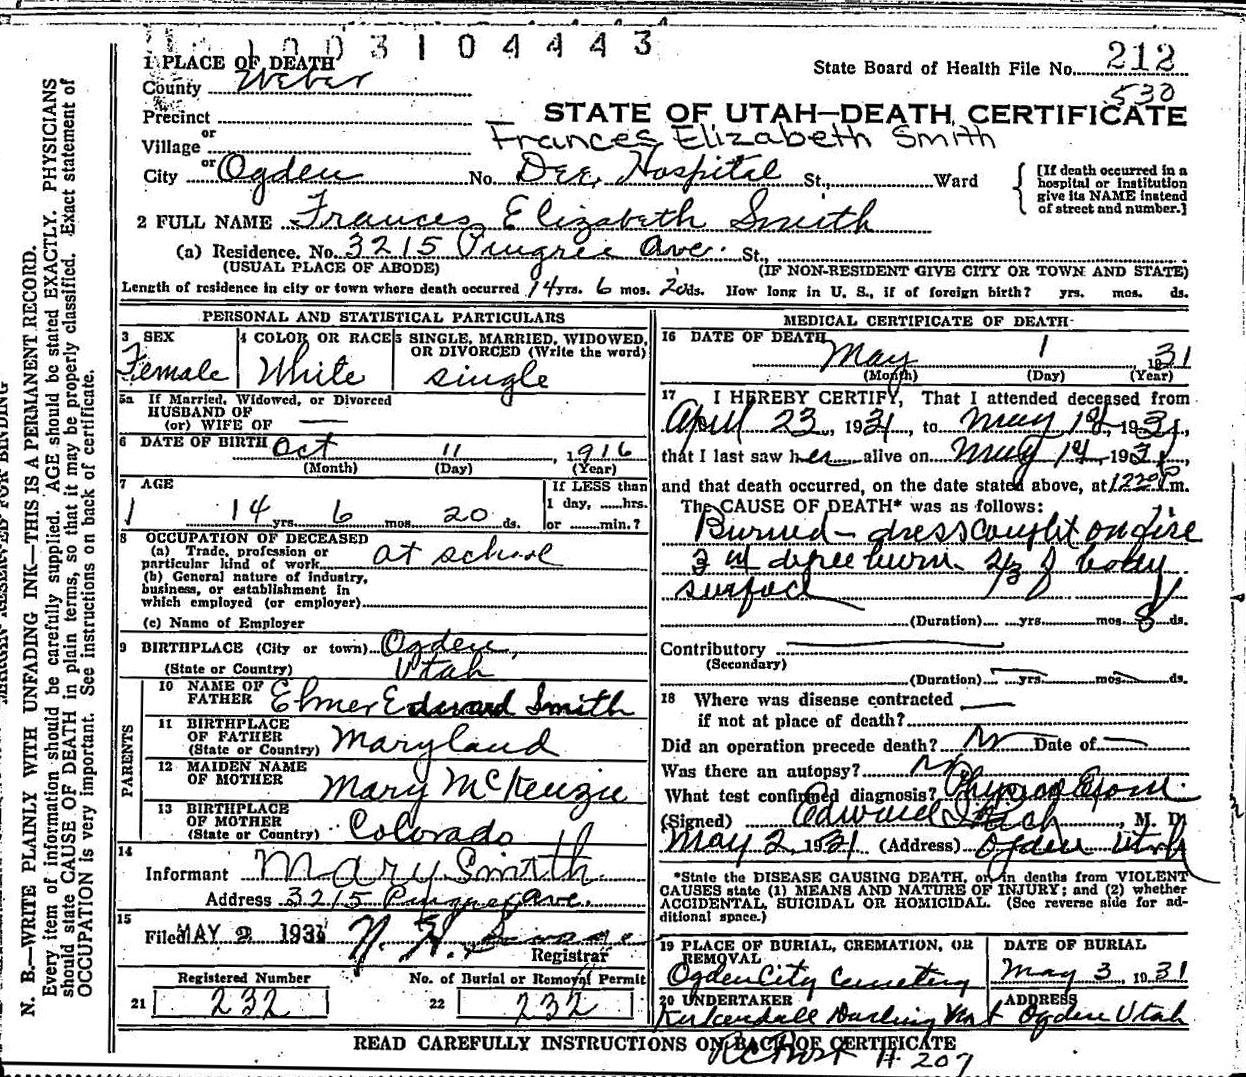 1003104443
1 PLACE OF DEATH
State Board of Health File No. 212
County Weber
530
Precinct
STATE OF UTAH—DEATH CERTIFICATE
or
Village
Frances Elizabeth Smith
or
City Ogden No. Dee Hospital St., Ward
[If death occurred in a hospital or institution give its NAME instead of street and number.]
2 FULL NAME Frances Elizabeth Smith
(a) Residence. No. 3215 Pingree Ave. St.,
(USUAL PLACE OF ABODE) (IF NON-RESIDENT GIVE CITY OR TOWN AND STATE)
Length of residence in city or town where death occurred 14 yrs. 6 mos. 20 ds. How long in U. S., if of foreign birth? yrs. mos. ds.
PERSONAL AND STATISTICAL PARTICULARS
3 SEX
Female
4 COLOR OR RACE
White
5 SINGLE, MARRIED, WIDOWED,
OR DIVORCED (Write the word)
single
5a If Married, Widowed, or Divorced
HUSBAND OF
(or) WIFE OF
6 DATE OF BIRTH Oct 11, 1916
(Month) (Day) (Year)
7 AGE
14 yrs. 6 mos. 20 ds.
If LESS than
1 day, ......hrs.
or ......min.?
8 OCCUPATION OF DECEASED
(a) Trade, profession or
particular kind of work at school
(b) General nature of industry,
business, or establishment in
which employed (or employer)
(c) Name of Employer
9 BIRTHPLACE (City or town) Ogden,
(State or Country) Utah
PARENTS
10 NAME OF
FATHER Elmer Edward Smith
11 BIRTHPLACE
OF FATHER
(State or Country) Maryland
12 MAIDEN NAME
OF MOTHER Mary McKenzie
13 BIRTHPLACE
OF MOTHER
(State or Country) Colorado
14
Informant Mary Smith
Address 3215 Pingree Ave.
15
Filed MAY 2 1931
Registrar
Registered Number
21 232
No. of Burial or Removal Permit
22 232
MEDICAL CERTIFICATE OF DEATH
16 DATE OF DEATH
May 1 1931
(Month) (Day) (Year)
17 I HEREBY CERTIFY, That I attended deceased from
April 23, 1931, to May 1st, 1931,
that I last saw her alive on May 1st, 1931,
and that death occurred, on the date stated above, at 1220 P m.
The CAUSE OF DEATH* was as follows:
Burned - dress caught on fire
3rd degree burn 2/3 of body
surface
(Duration) yrs. mos. 8 ds.
Contributory
(Secondary)
(Duration) yrs. mos. ds.
18 Where was disease contracted
if not at place of death?
Did an operation precede death? No Date of
Was there an autopsy? No
What test confirmed diagnosis? Physical Exam.
(Signed) Edward I Rich, M. D.
May 2, 1931 (Address) Ogden Utah
*State the DISEASE CAUSING DEATH, or in deaths from VIOLENT
CAUSES state (1) MEANS AND NATURE OF INJURY; and (2) whether
ACCIDENTAL, SUICIDAL OR HOMICIDAL. (See reverse side for ad-
ditional space.)
19 PLACE OF BURIAL, CREMATION, OR
REMOVAL
Ogden City Cemetery
DATE OF BURIAL
May 3, 1931
20 UNDERTAKER
Kirkendall Darling Mort
ADDRESS
Ogden Utah
READ CAREFULLY INSTRUCTIONS ON BACK OF CERTIFICATE
# 207
MARGIN RESERVED FOR BINDING
N. B.—WRITE PLAINLY WITH UNFADING INK—THIS IS A PERMANENT RECORD.
Every item of information should be carefully supplied. AGE should be stated EXACTLY. PHYSICIANS
should state CAUSE OF DEATH in plain terms, so that it may be properly classified. Exact statement of
OCCUPATION is very important. See instructions on back of certificate.